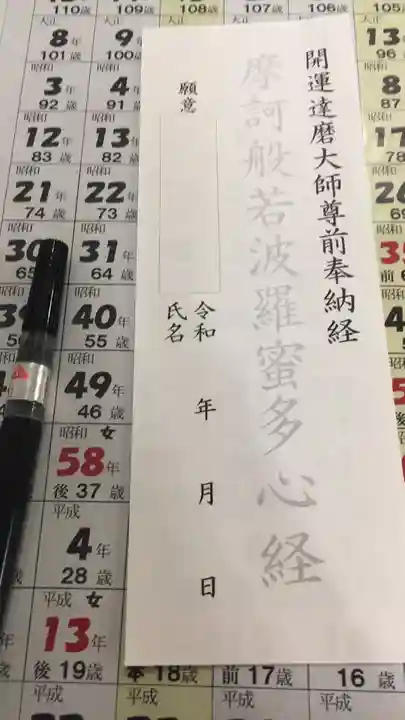 開運達磨大師尊前奉納経
摩訶般若波羅蜜多心経
願意
令和 年 月 日
氏名
110歳 109歳 108歳 107歳 106歳
大正 大正 大正
8年 9年 13
101歳 100歳 96
昭和 昭和 昭和
3年 4年 8
92歳 91歳 87
昭和 昭和
12年 13年
83歳 82歳
昭和 昭和
21年 22年 26
74歳 73歳
昭和 昭和
30 31年
65 64歳
昭和
40年
55歳
昭和
49年
46歳
昭和 女
58年
後37歳
平成
4年
28歳
平成 女
13年
後19歳 本18歳 前17歳 16歳
平成 平成 平成 平成